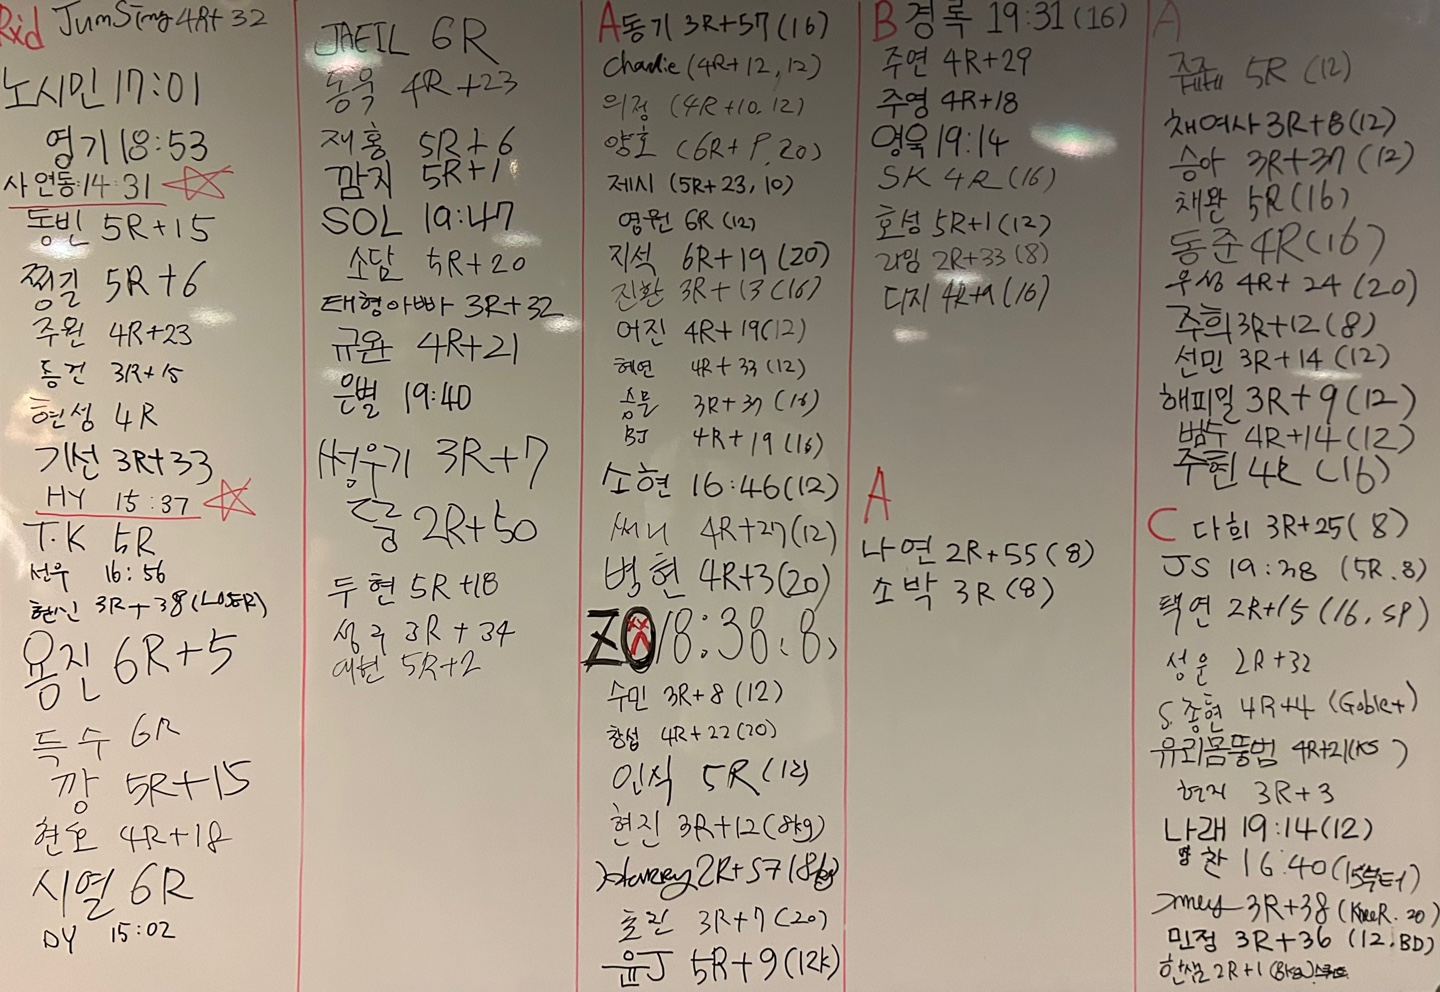 Rxd JumSing 4R+32
노시민 17:01
영기 18:53
사연동:14:31
동빈 5R+15
찡길 5R+6
주원 4R+23
동건 3R+15
현성 4R
기선 3R+33
HY 15:37
T.K 5R
선우 16:56
현신 3R+38(LOSER)
용진 6R+5
득수 6R
깡 5R+15
현호 4R+18
시열 6R
DY 15:02
JAEIL 6R
동욱 4R+23
재홍 5R+6
깜지 5R+1
SOL 19:47
소담 5R+20
태형아빠 3R+32
규완 4R+21
은별 19:40
쎵우기 3R+7
2R+50
두현 5R+18
성주 3R+34
예현 5R+2
A 동기 3R+57(16)
Charlie (4R+12,12)
의정 (4R+10.12)
양호 (6R+9.20)
제시 (5R+23,10)
영원 6R (12)
지석 6R+19(20)
진환 3R+13(16)
어진 4R+19(12)
혜연 4R+33(12)
승문 3R+37(16)
BJ 4R+19(16)
소현 16:46(12)
써니 4R+27(12)
병현 4R+3(20)
ZO 18:38(8)
수민 3R+8(12)
창섭 4R+22(20)
인식 5R(12)
현진 3R+12(8kg)
Harry 2R+57(8kg)
효린 3R+7(20)
윤J 5R+9(12k)
B 경록 19:31(16)
주연 4R+29
주영 4R+18
영욱 19:14
SK 4R(16)
효성 5R+1(12)
라임 2R+33(8)
디지 4R+9(16)
A
나연 2R+55(8)
소박 3R(8)
A
쥬쥬베베 5R(12)
채여사 3R+8(12)
승아 3R+37(12)
채완 5R(16)
동준 4R(16)
우성 4R+24(20)
주희 3R+12(8)
선민 3R+14(12)
해피밀 3R+9(12)
범수 4R+14(12)
주현 4R(16)
C 다희 3R+25(8)
JS 19:38 (5R.8)
택연 2R+15(16,SP)
성운 2R+32
S.종현 4R+4 (Goblet)
유리몸뚱범 4R+21(KS)
현지 3R+3
나래 19:14(12)
명찬 16:40(15부터)
Jmey 3R+38(KneeR.20)
민정 3R+36 (12.BD)
한샘 2R+1(8kg)